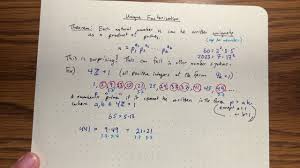 Unique Factorization
Theorem: Each natural number n can be written uniquely
as a product of primes. (up to reorder)
n = p₁^a₁ p₂^a₂ ... p_k^a_k
60 = 2²·3·5
2023 = 7·17²
This is surprising! This can fail in other number systems.
Ex) 4ℤ+1 (all positive integers of the form 4k+1)
1, 5, 9, 13, 17, 21, 25, 29, 33, 37, 41, 45, 49
A number is prime if it cannot be written in the form p = ab,
where a, b ∈ 4ℤ+1
except a=1
65 = 5·13
441 = 9·49 = 21·21